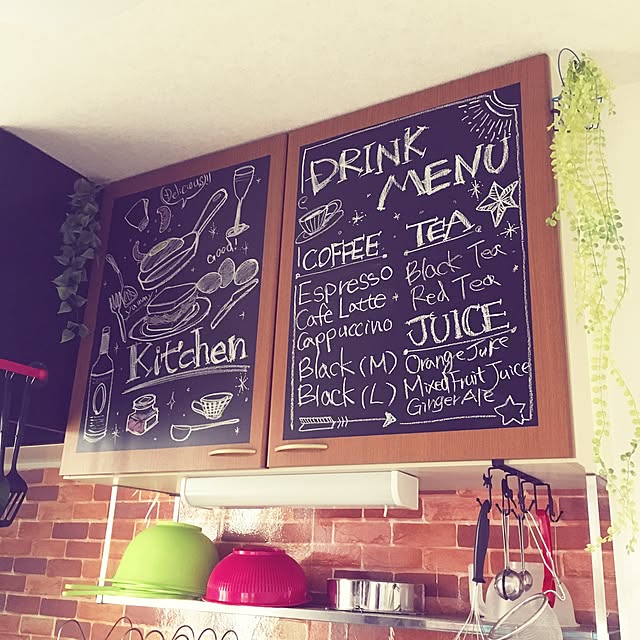 Delicious!!
Good!
Yummy
Kitchen
DRINK
MENU
COFFEE
Espresso
Café Latte
Cappuccino
Black (M)
Black (L)
TEA
Black Tea
Red Tea
JUICE
Orange Juice
Mixed Fruit Juice
Ginger Ale